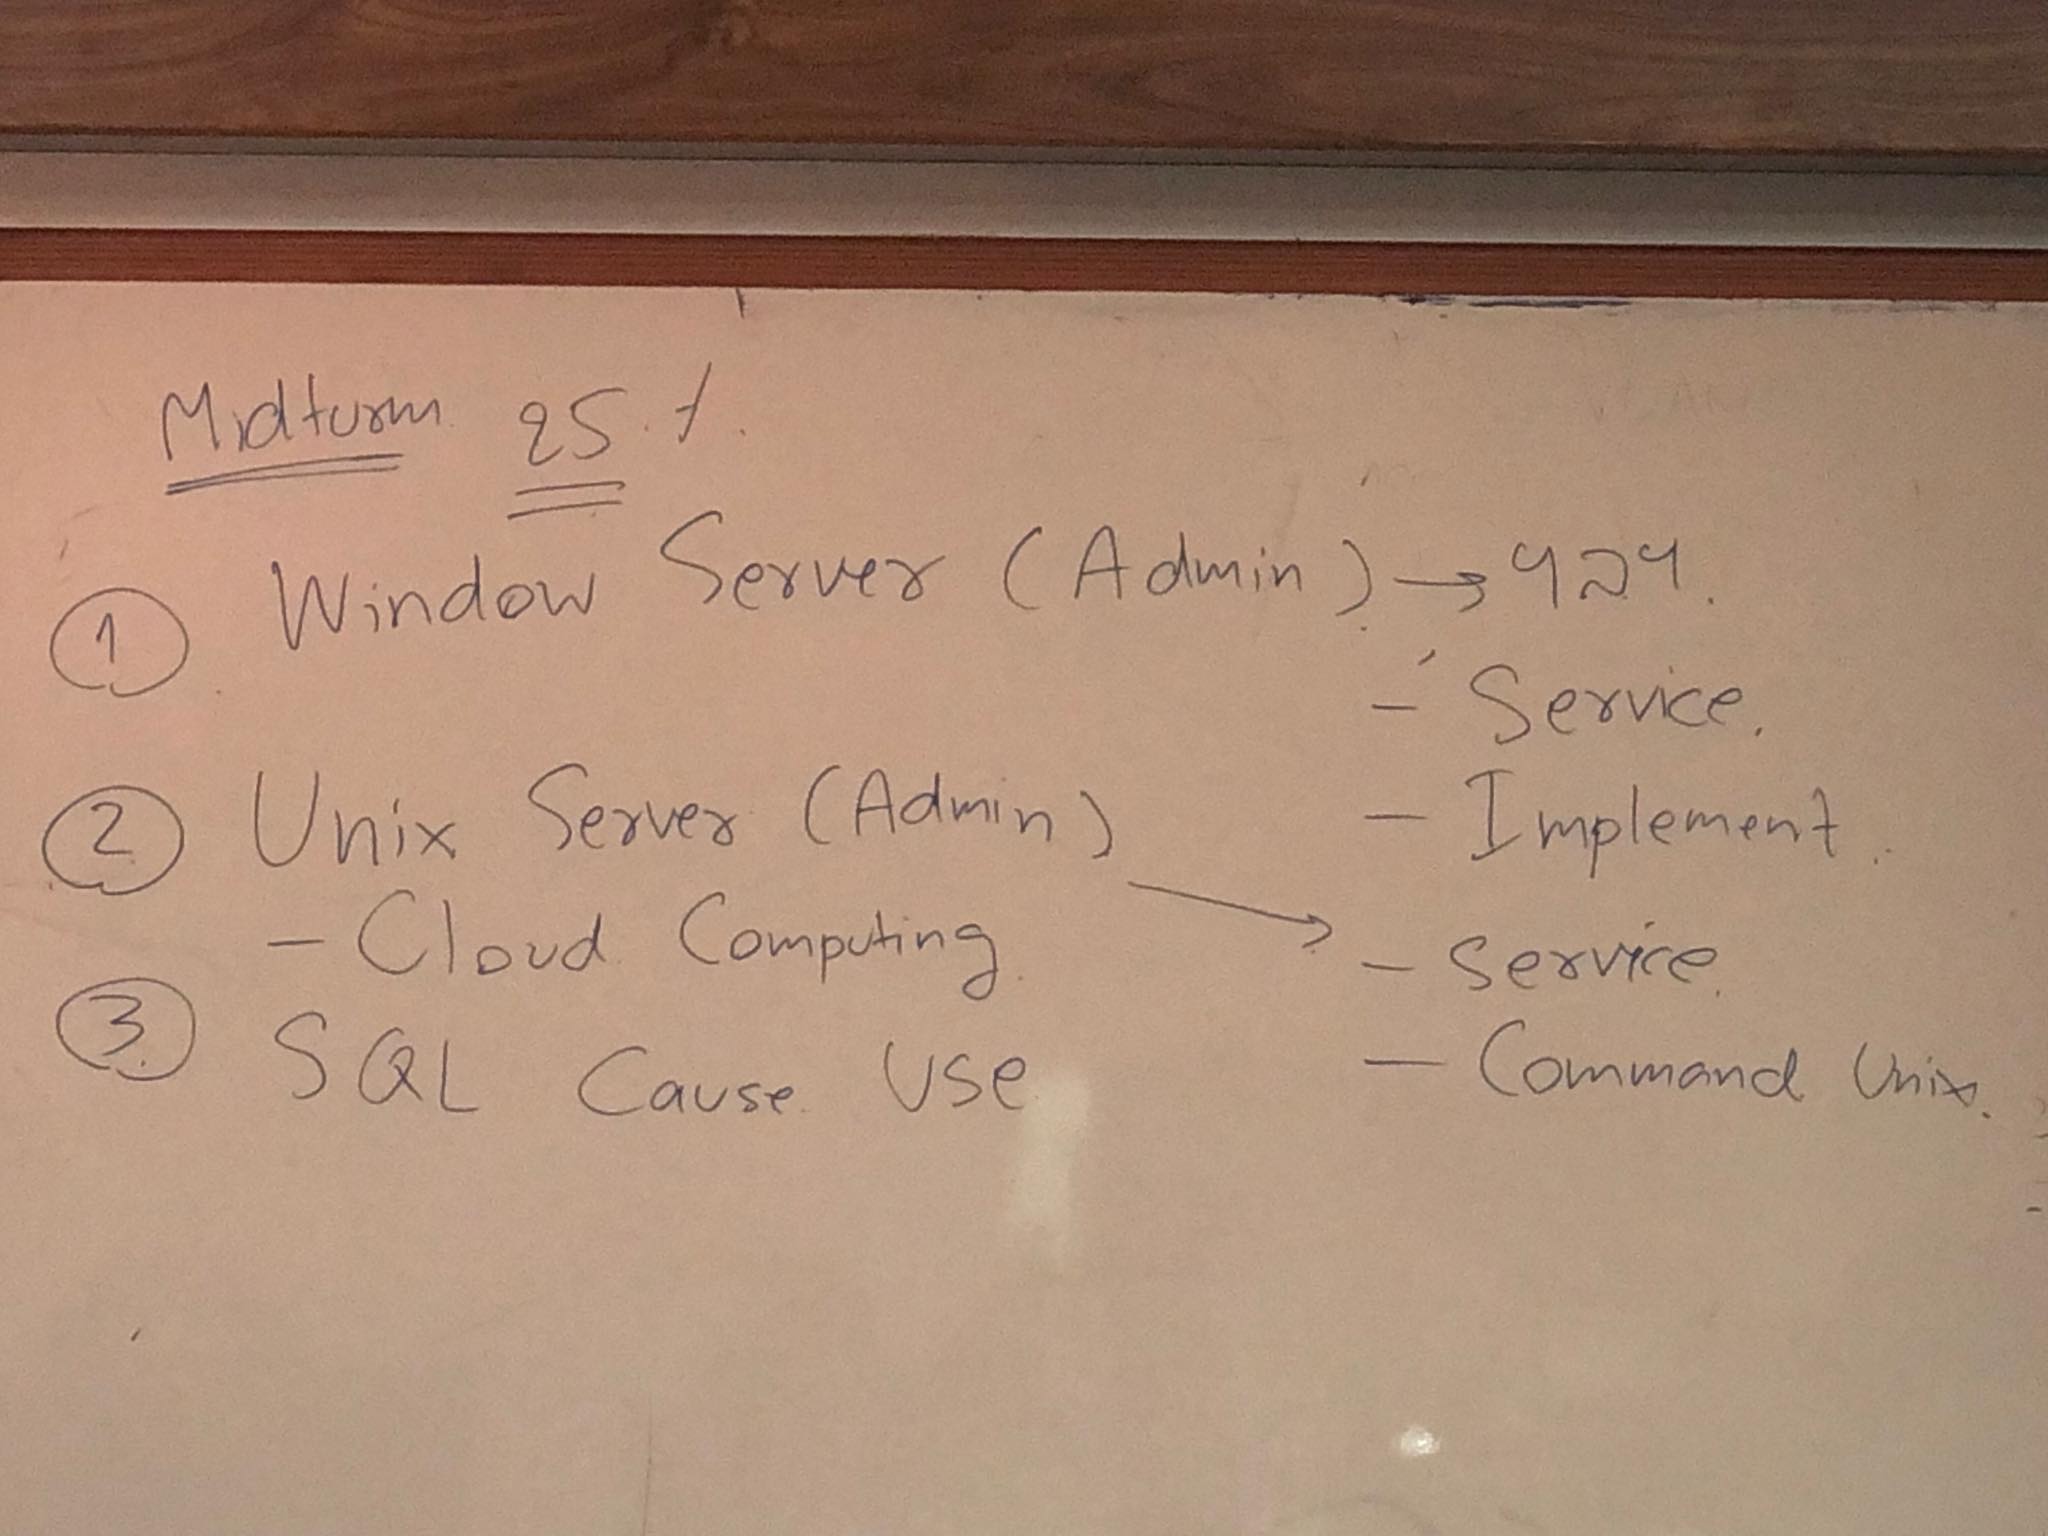 Midturm 25 %
① Window Server (Admin) →
- Service.
- Implement.
② Unix Server (Admin) →
- Cloud Computing
- Service.
- Command Unix.
③ SQL Cause Use